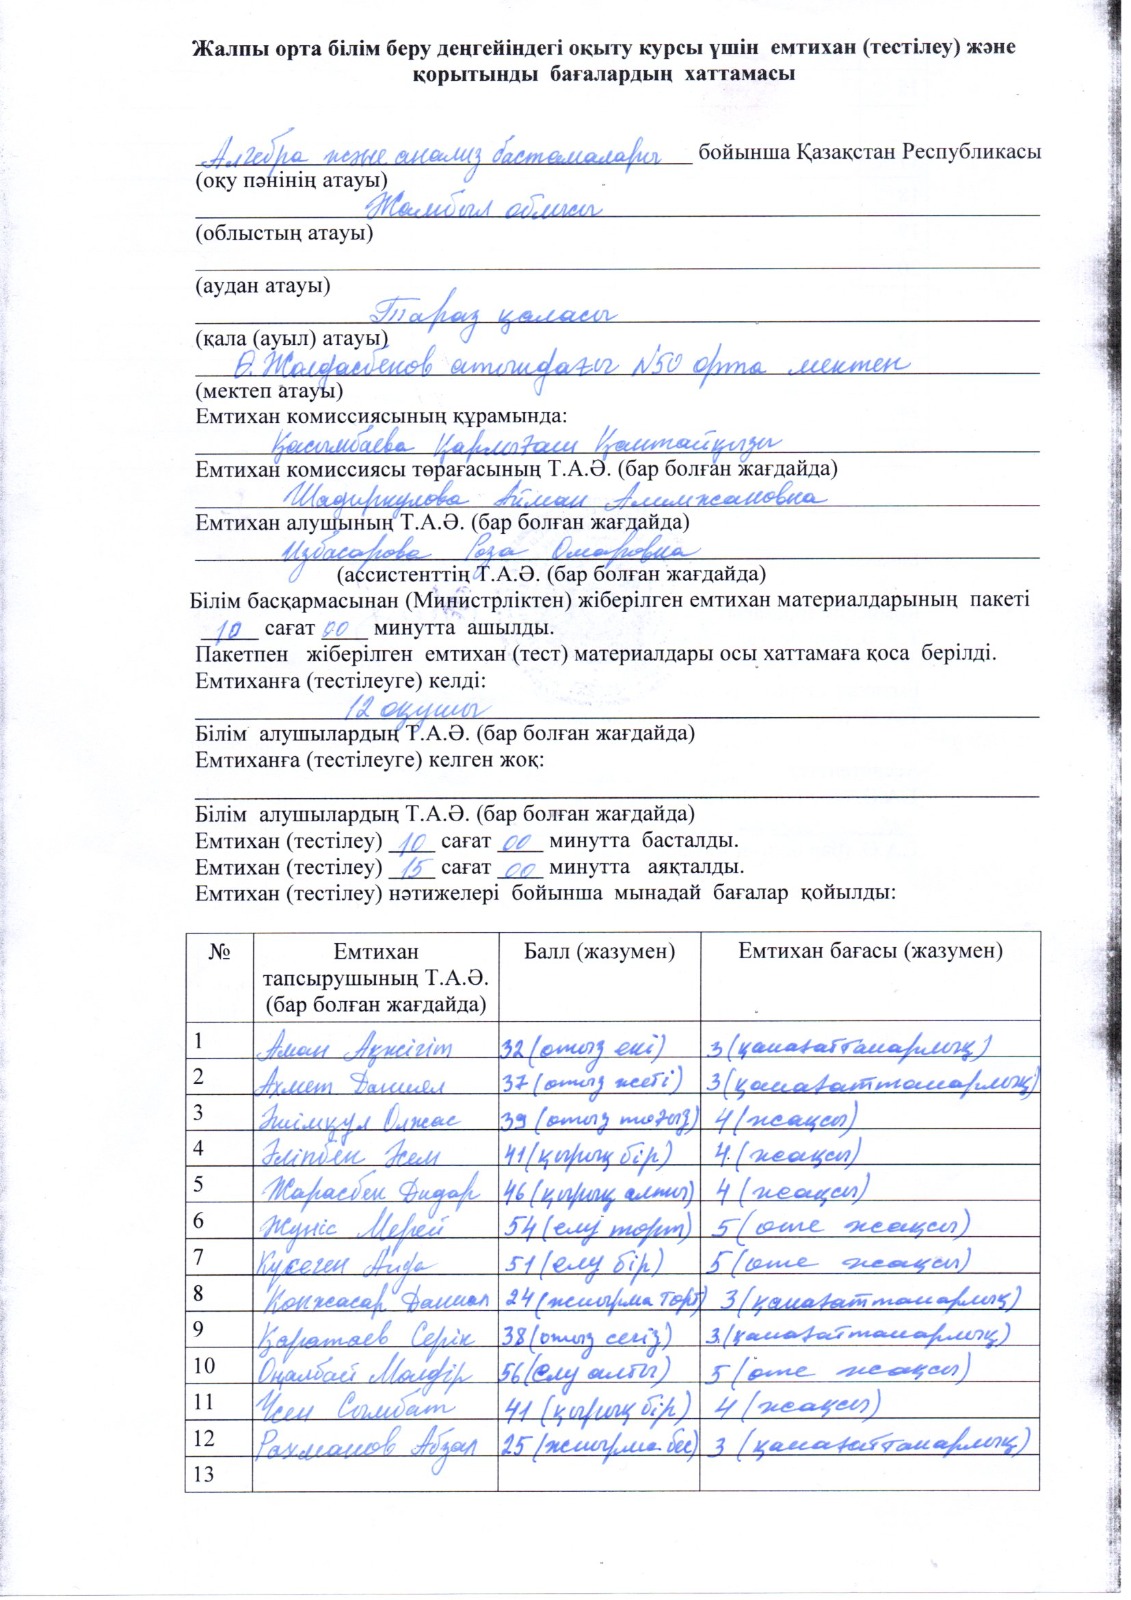 Жалпы орта білім беру деңгейіндегі оқыту курсы үшін емтихан (тестілеу) және
қорытынды бағалардың хаттамасы
Алгебра және анализ бастамалары бойынша Қазақстан Республикасы
(оқу пәнінің атауы)
Жамбыл облысы
(облыстың атауы)
(аудан атауы)
Тараз қаласы
(қала (ауыл) атауы)
Ө. Жолдасбеков атындағы №50 орта мектеп
(мектеп атауы)
Емтихан комиссиясының құрамында:
Қасымбаева Қарлығаш Қаштайқызы
Емтихан комиссиясы төрағасының Т.А.Ә. (бар болған жағдайда)
Шадиркулова Айман Алимжановна
Емтихан алушының Т.А.Ә. (бар болған жағдайда)
Избасарова Роза Омаровна
(ассистенттің Т.А.Ә. (бар болған жағдайда)
Білім басқармасынан (Министрліктен) жіберілген емтихан материалдарының пакеті
10 сағат 00 минутта ашылды.
Пакетпен жіберілген емтихан (тест) материалдары осы хаттамаға қоса берілді.
Емтиханға (тестілеуге) келді:
12 оқушы
Білім алушылардың Т.А.Ә. (бар болған жағдайда)
Емтиханға (тестілеуге) келген жоқ:
Білім алушылардың Т.А.Ә. (бар болған жағдайда)
Емтихан (тестілеу) 10 сағат 00 минутта басталды.
Емтихан (тестілеу) 15 сағат 00 минутта аяқталды.
Емтихан (тестілеу) нәтижелері бойынша мынадай бағалар қойылды:
№ Емтихан тапсырушының Т.А.Ә. (бар болған жағдайда) Балл (жазумен) Емтихан бағасы (жазумен)
1 Аман Ақжігіт 32 (отыз екі) 3 (қанағаттанарлық)
2 Ахмет Даниял 37 (отыз жеті) 3 (қанағаттанарлық)
3 Әшімқұл Олжас 39 (отыз тоғыз) 4 (жақсы)
4 Әліпбек Әсем 41 (қырық бір) 4 (жақсы)
5 Жарасбек Дидар 46 (қырық алты) 4 (жақсы)
6 Жүніс Мерей 54 (елу төрт) 5 (өте жақсы)
7 Күсеген Аида 51 (елу бір) 5 (өте жақсы)
8 Қонжасар Даниал 24 (жиырма төрт) 3 (қанағаттанарлық)
9 Қаратаев Серік 38 (отыз сегіз) 3 (қанағаттанарлық)
10 Оңалбай Мөлдір 56 (елу алты) 5 (өте жақсы)
11 Үсен Сымбат 41 (қырық бір) 4 (жақсы)
12 Рахманов Абзал 25 (жиырма бес) 3 (қанағаттанарлық)
13